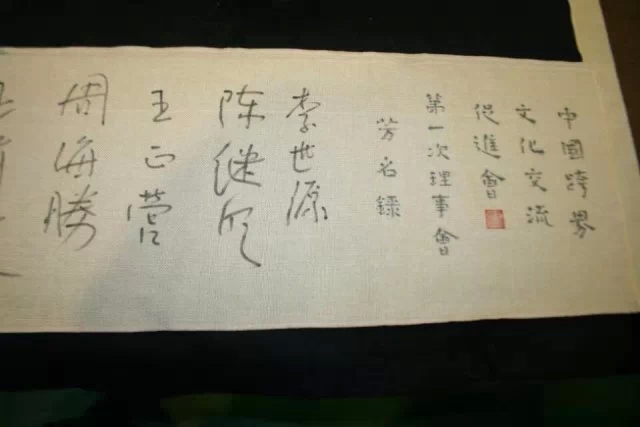 中國跨界
文化交流
促進會
第一次理事會
芳名錄
李世源
陈继
王正营
周海勝